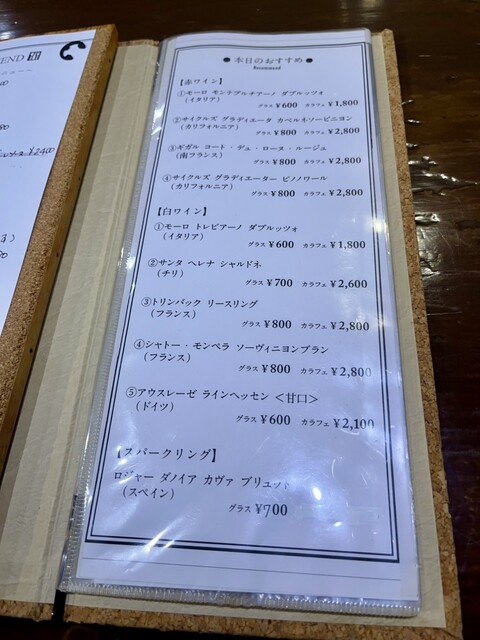 END
本日のおすすめ
Recommend
【赤ワイン】
①モーロ モンテプルチアーノ ダブルッツォ
（イタリア）
グラス ¥600 カラフェ ¥1,800
②サイクルズ グラディエータ カベルネソービニヨン
（カリフォルニア）
グラス ¥800 カラフェ ¥2,800
③ギガル コート・デュ・ローヌ・ルージュ
（南フランス）
グラス ¥800 カラフェ ¥2,800
④サイクルズ グラディエーター ピノノワール
（カリフォルニア）
グラス ¥800 カラフェ ¥2,800
【白ワイン】
①モーロ トレビアーノ ダブルッツォ
（イタリア）
グラス ¥600 カラフェ ¥1,800
②サンタ ヘレナ シャルドネ
（チリ）
グラス ¥700 カラフェ ¥2,600
③トリンバック リースリング
（フランス）
グラス ¥800 カラフェ ¥2,800
④シャトー・モンペラ ソーヴィニヨンブラン
（フランス）
グラス ¥800 カラフェ ¥2,800
⑤アウスレーゼ ラインヘッセン ＜甘口＞
（ドイツ）
グラス ¥600 カラフェ ¥2,100
【スパークリング】
ロジャー ダノイア カヴァ ブリュット
（スペイン）
グラス ¥700